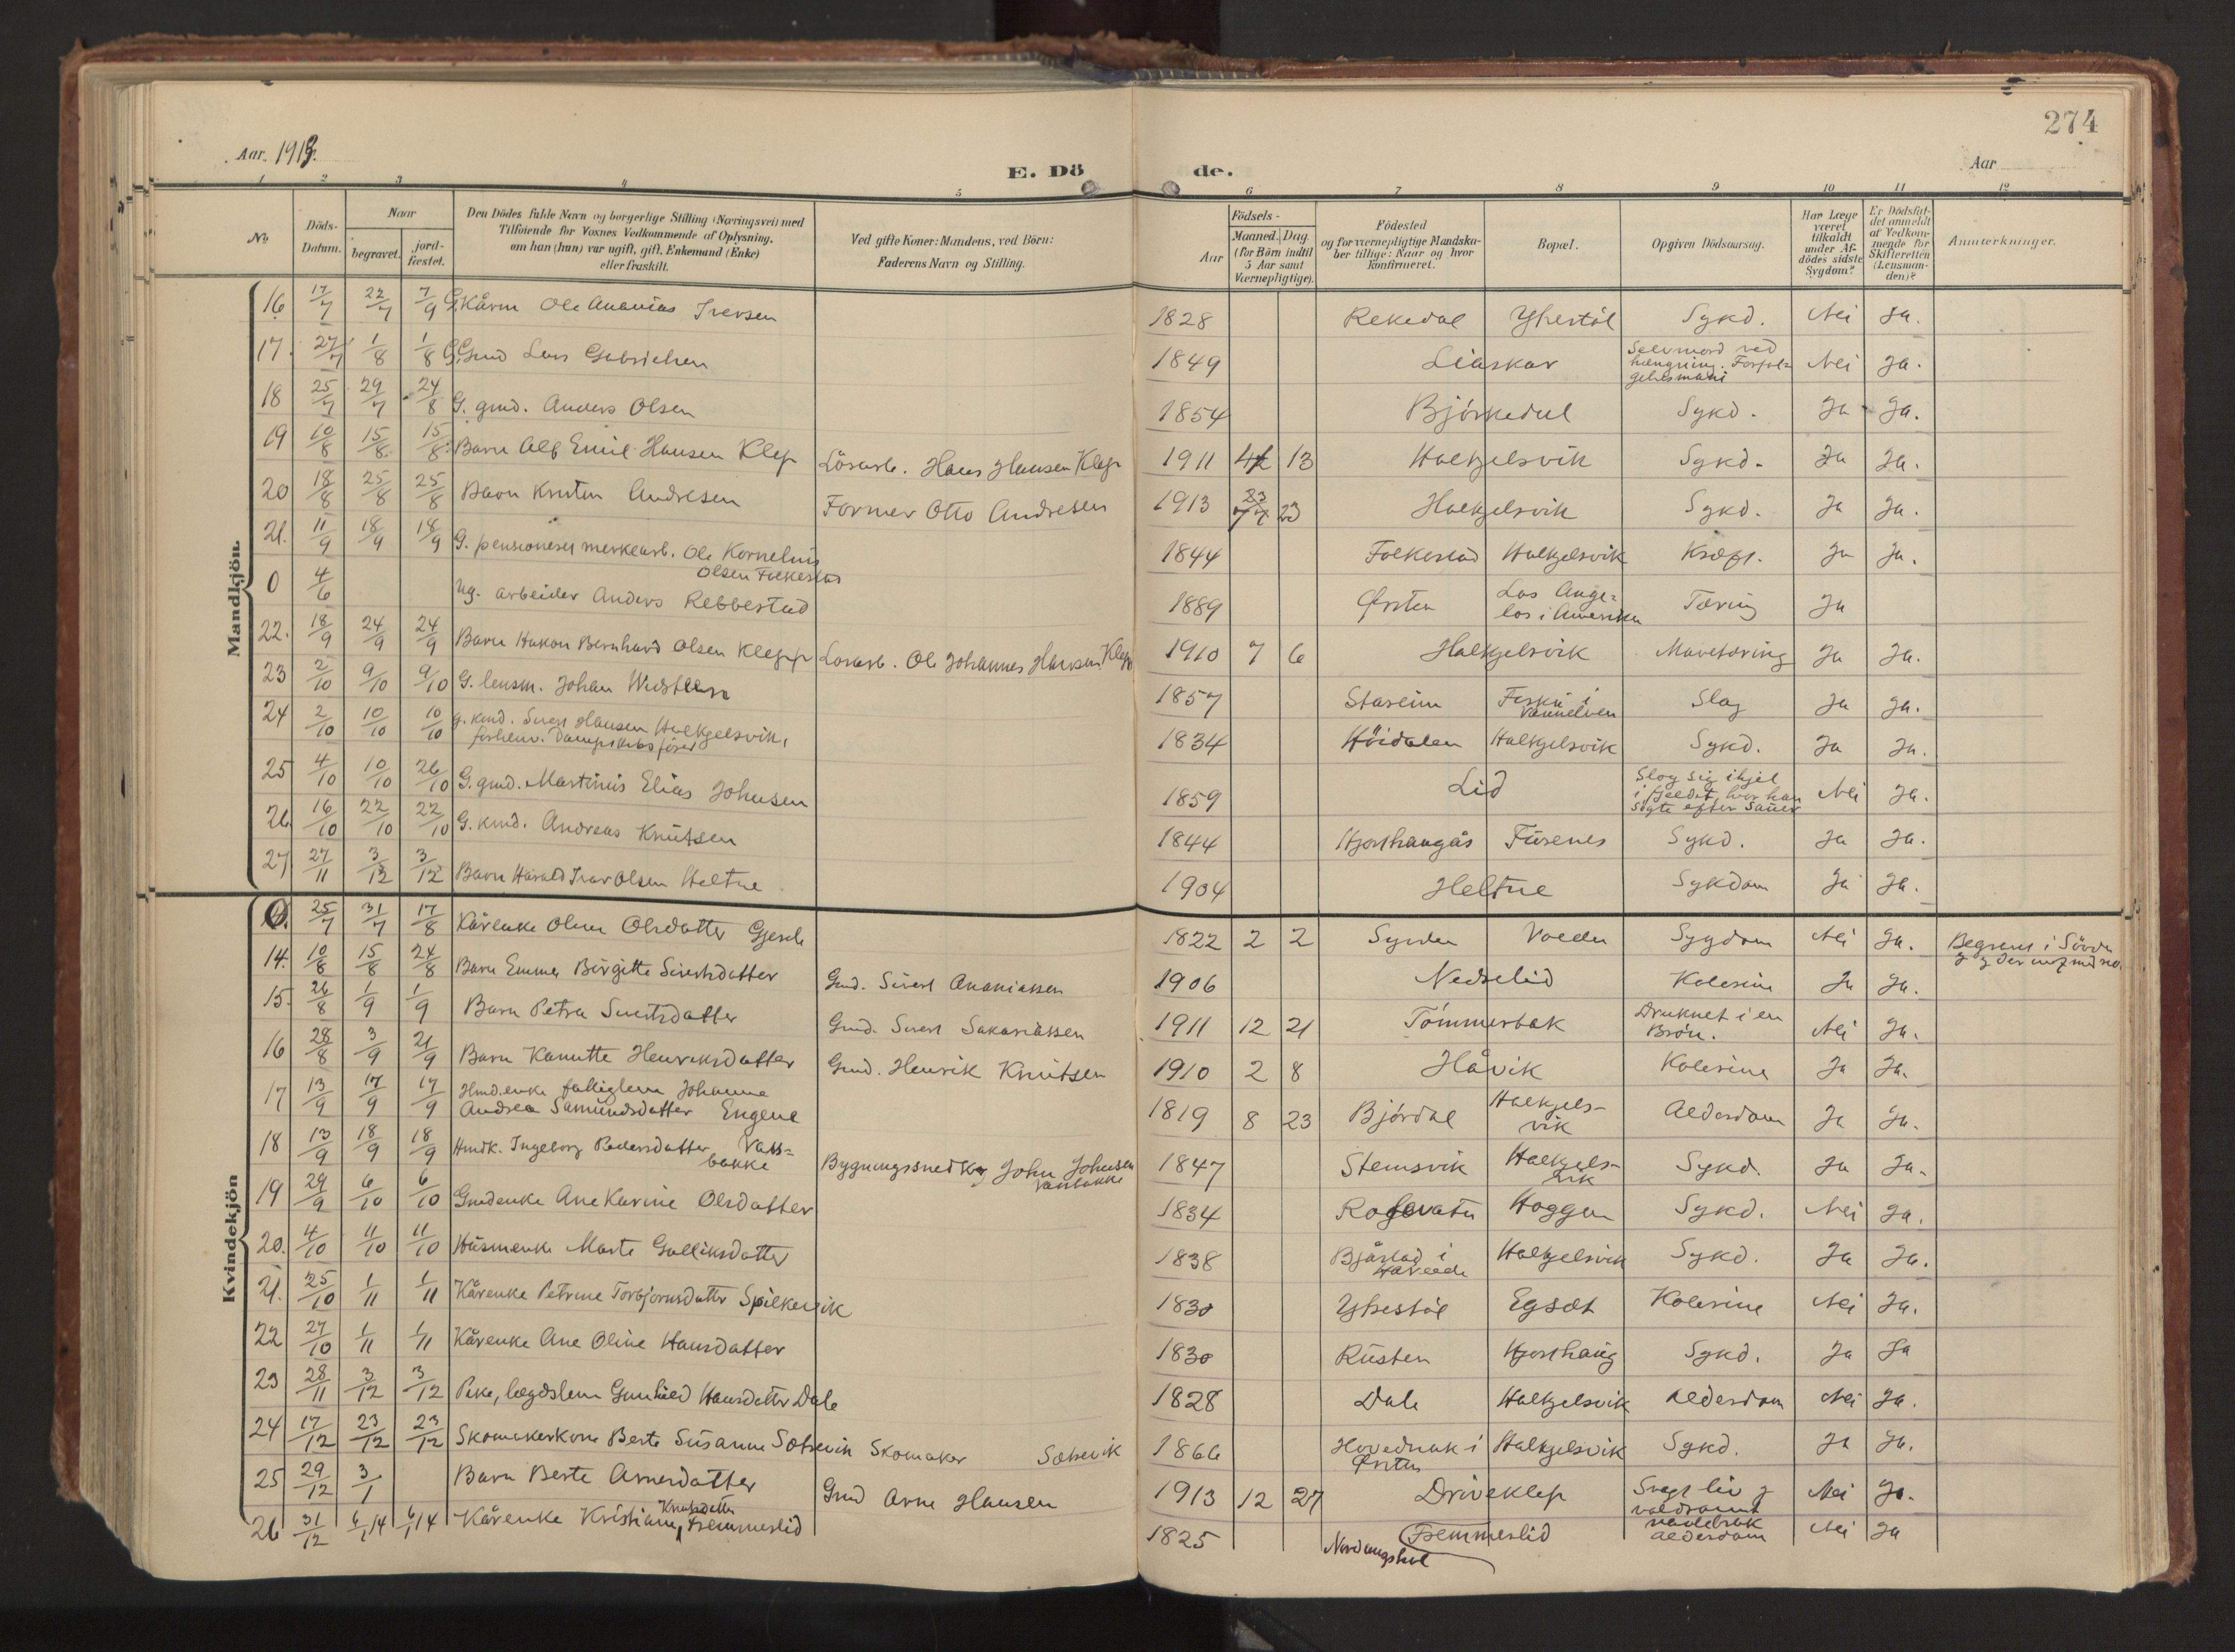 274
Aar. 1913.
E. Döde.
Aar
1 2 3 4 5 6 7 8 9 10 11 12
No.
Döds-Datum.
Naar
begravet.
jord-fæstet.
Den Dödes fulde Navn og borgerlige Stilling (Næringsvei) med
Tilföiende for Voxnes Vedkommende af Oplysning,
om han (hun) var ugift, gift, Enkemand (Enke)
eller fraskilt.
Ved gifte Koner: Mandens, ved Börn:
Faderens Navn og Stilling.
Födsels-
Aar
Maaned. Dag.
(for Börn indtil
5 Aar samt
Værnepligtige).
Födested
og for værnepligtige Mandska-
ber tillige: Naar og hvor
konfirmeret.
Bopæl.
Opgiven Dödsaarsag.
Har Læge
været
tilkaldt
under Af-
dödes sidste
Sygdom?
Er Dödsfal-
det anmeldt
af Vedkom-
mende for
Skifteretten
(Lensman-
den)?
Anmærkninger.
Mandkjön.
16 17/7 22/7 7/9 G. Kårm Ole Ananias Iversen 1828 Rekedal Yttrestöl Sykd. Nei Ja.
17. 27/7 1/8 1/8 G. Gmd Lars Gabrielsen 1849 Liaskar Selvmord ved
hængning. Forføl-
gelsesmani Nei Ja.
18 25/7 29/7 24/8 G. gmd. Anders Olsen 1854 Björkedal Sykd. Ja Ja.
19 10/8 15/8 15/8 Barn Alf Emil Hansen Klep Lösarb. Hans Hansen Klep 1911 4 13 Volkjelsvik Sykd. Ja Ja.
20 18/8 25/8 25/8 Barn Knuten Andresen Former Otto Andresen 1913 23/7 7 23 Halkjelsvik Sykd. Ja Ja.
21. 11/9 18/9 18/9 G. pensioneret merkearb. Ole Kornelius
Olsen Folkestad 1844 Folkestad Halkjelsvik Kræft. Ja Ja.
0 4/6 Ug. arbeider Anders Rebbestad 1889 Örsten Los Ange-
los i Amerika Tæring Ja
22. 18/9 24/9 24/9 Barn Hakon Bernhard Olsen Klepp Lösarb. Ole Johannes Hansen Klepp 1910 7 6 Halkjelsvik Mavetæring Ja Ja.
23 2/10 9/10 9/10 G. lensm. Johan 1857 Stareim i
Vannelven Slag Ja Ja.
24 2/10 10/10 10/10 G. kmd. Sivert Hansen Halkjelsvik,
forhenv. Dampskibsförer 1834 Höidalen Halkjelsvik Sykd. Ja Ja.
25 4/10 10/10 26/10 G. gmd. Martinus Elias Johnsen 1859 Lid Slog sig ihjel
i fjeldet, hvor han
sögte efter sauer Nei Ja.
26 16/10 22/10 22/10 G. kmd. Andreas Knutsen 1844 Hjorthaugås Furenes Sykd. Ja Ja.
27 27/11 3/12 3/12 Barn Harald Ivar Olsen Heltne 1904 Heltne Sykdom Ja Ja.
Kvindekjön
0. 25/7 31/7 17/8 Kårenke Oline Olsdatter 1822 2 2 Syrdan Volden Sygdom Nei Ja. Begravet i
14. 10/8 15/8 24/8 Barn Emma Birgitte Sivertsdatter Gmd. Sivert Ananiassen 1906 Nedrelid Kolerine Ja Ja.
15. 26/8 1/9 1/9 Barn Petra Sivertsdatter Gmd. Sivert Sakariassen 1911 12 21 Tömmerbak Druknet i en
Brön. Nei Ja.
16 28/8 3/9 21/9 Barn Kanutte Henriksdatter Gmd. Henrik Knutsen 1910 2 8 Håvik Kolerine Ja Ja.
17 13/9 17/9 17/9 Hmd.enke fattiglem Johanne
Andrea Samundsdatter Engene 1819 8 23 Björdal Halkjels-
vik Alderdom Ja Ja.
18 13/9 18/9 18/9 Hmdk. Ingeborg Pedersdatter Vass-
bakke Bygningssnedker John Johnsen
Vasbakke 1847 Stemsvik Halkjels-
vik Sykd. Ja Ja.
19 29/9 6/10 6/10 Gmdenke Ane Karine Olsdatter 1834 Rossevatn Hoggen Sykd. Nei Ja.
20. 4/10 11/10 11/10 Husmenke Marte Gulliksdatter 1838 Bjåstad i
Halkjelsvik Sykd. Ja Ja.
21. 25/10 1/11 1/11 Kårenke Petrine Torbjörnsdatter Spilkevik 1830 Yttrestöl Egset Kolerine Nei Ja.
22 27/10 1/11 1/11 Kårenke Ane Oline Hansdatter 1830 Rusten Hjorthaug Sykd. Ja Ja
23 28/11 3/12 3/12 Pike, lægdslem Gunhild Hansdatter Dale 1828 Dale Halkjelsvik Alderdom Nei Ja.
24 17/12 23/12 23/12 Skomakerkone Berte Susanne Sætrevik Skomaker Sætrevik 1866 Hovednak i
Örsten Halkjelsvik Sykd. Ja Ja.
25 29/12 3/1 Barn Berte Arnesdatter Gmd Arne Hansen 1913 12 27 Driveklep Svagt liv og
voldsomt
navlebrok Nei Ja.
26 31/12 6/1 14 6/1 14 Kårenke Kristiane Knutsdatter Fremmerlid 1825 Fremmerlid
Alderdom Nei Ja